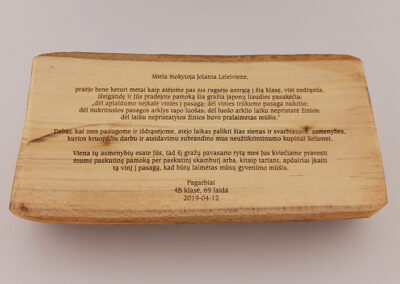 Miela mokytoja Jolanta Leleiviene,
praėjo bene keturi metai kaip atėjome pas jus rugsėjo antrąją į šią klasę, visi nedrąsūs,
išsigandę ir Jūs pradėjote pamoką šia gražia japonų liaudies pasakėčia:
„dėl aplaidumo neįkalė vinies į pasagą; dėl vinies trūkumo pasaga nukrito;
dėl nukritusios pasagos arklys tapo luošas; dėl luošo arklio laiku nepristatė žinios;
dėl laiku nepristatytos žinios buvo pralaimėtas mūšis."
Dabar, kai mes paaugome ir išdrąsėjome, atėjo laikas palikti šias sienas ir svarbiausia, asmenybes,
kurios kruopščiu darbu ir atsidavimu subrandino mus neužtikrintumo kupinai kelionei.
Viena tų asmenybių esate Jūs, tad šį gražų pavasario rytą mes Jus kviečiame pravesti
mums paskutinę pamoką per paskutinį skambutį arba, kitaip tariant, apdairiai įkalti
tą vinį į pasagą, kad būtų laimėtas mūsų gyvenimo mūšis.
Pagarbiai
4B klasė, 69 laida
2019-04-12